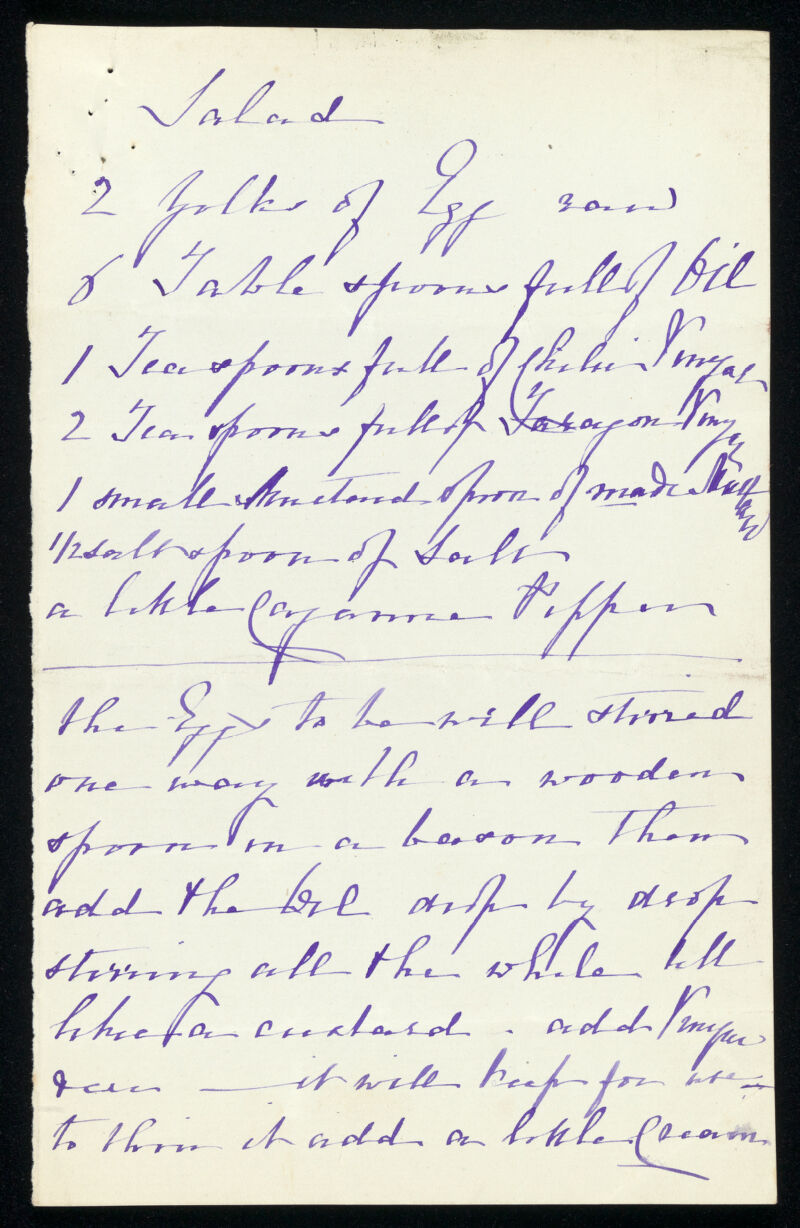 Salad
2 Yolks of Egg raw
8 Table spoons full of Oil
1 Tea spoons full of Chili Vinegar
2 Tea spoons full of Taragon Vinegar
1 small Mustard spoon of made Mustard
1/2 salt spoon of Salt
a little Cayanne Pepper
the Eggs to be well stirred
one way with a wooden
spoon in a bason then
add the Oil drop by drop
stirring all the while till
like a custard - add Vinegar
it will keep for use -
to thin it add a little Cream